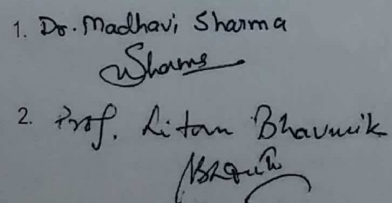 1. Dr. Madhavi Sharma
Sharma
2. Prof. Litan Bhavmik